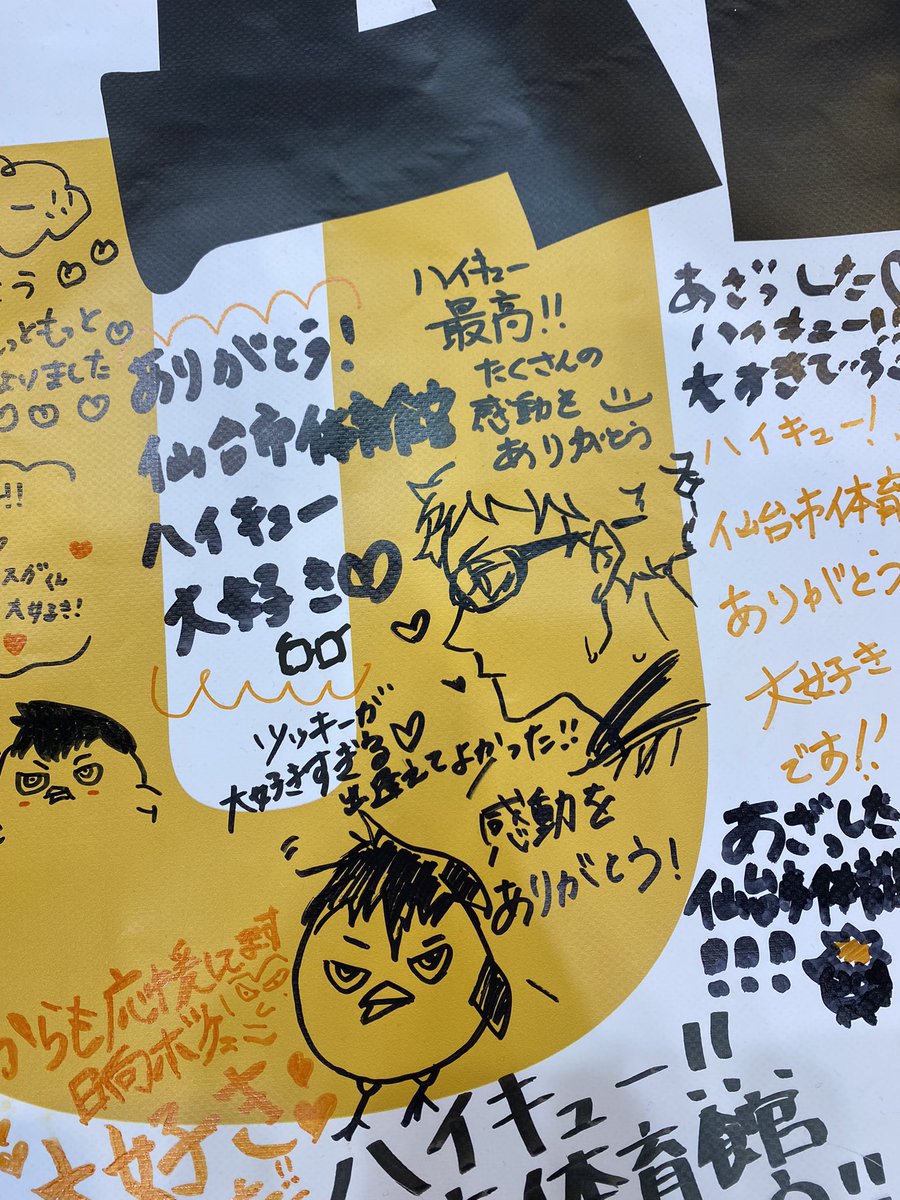 っともっと
よりました
スガくん
大好き!
ありがとう!
仙台市体育館
ハイキュー
大好き
ツッキーが
大好きすぎる
出逢えてよかった!!
ハイキュー
最高!!
たくさんの
感動を
ありがとう
感動を
ありがとう!
あざっした
ハイキュー!!
大すきでっす
ハイキュー!
仙台市体育
ありがとう
大好き
です!!
あざっした
仙台市体育館
!!!
からも応援してます
日向ボケェ
大好き
!!
ハイキュー!!
体育館